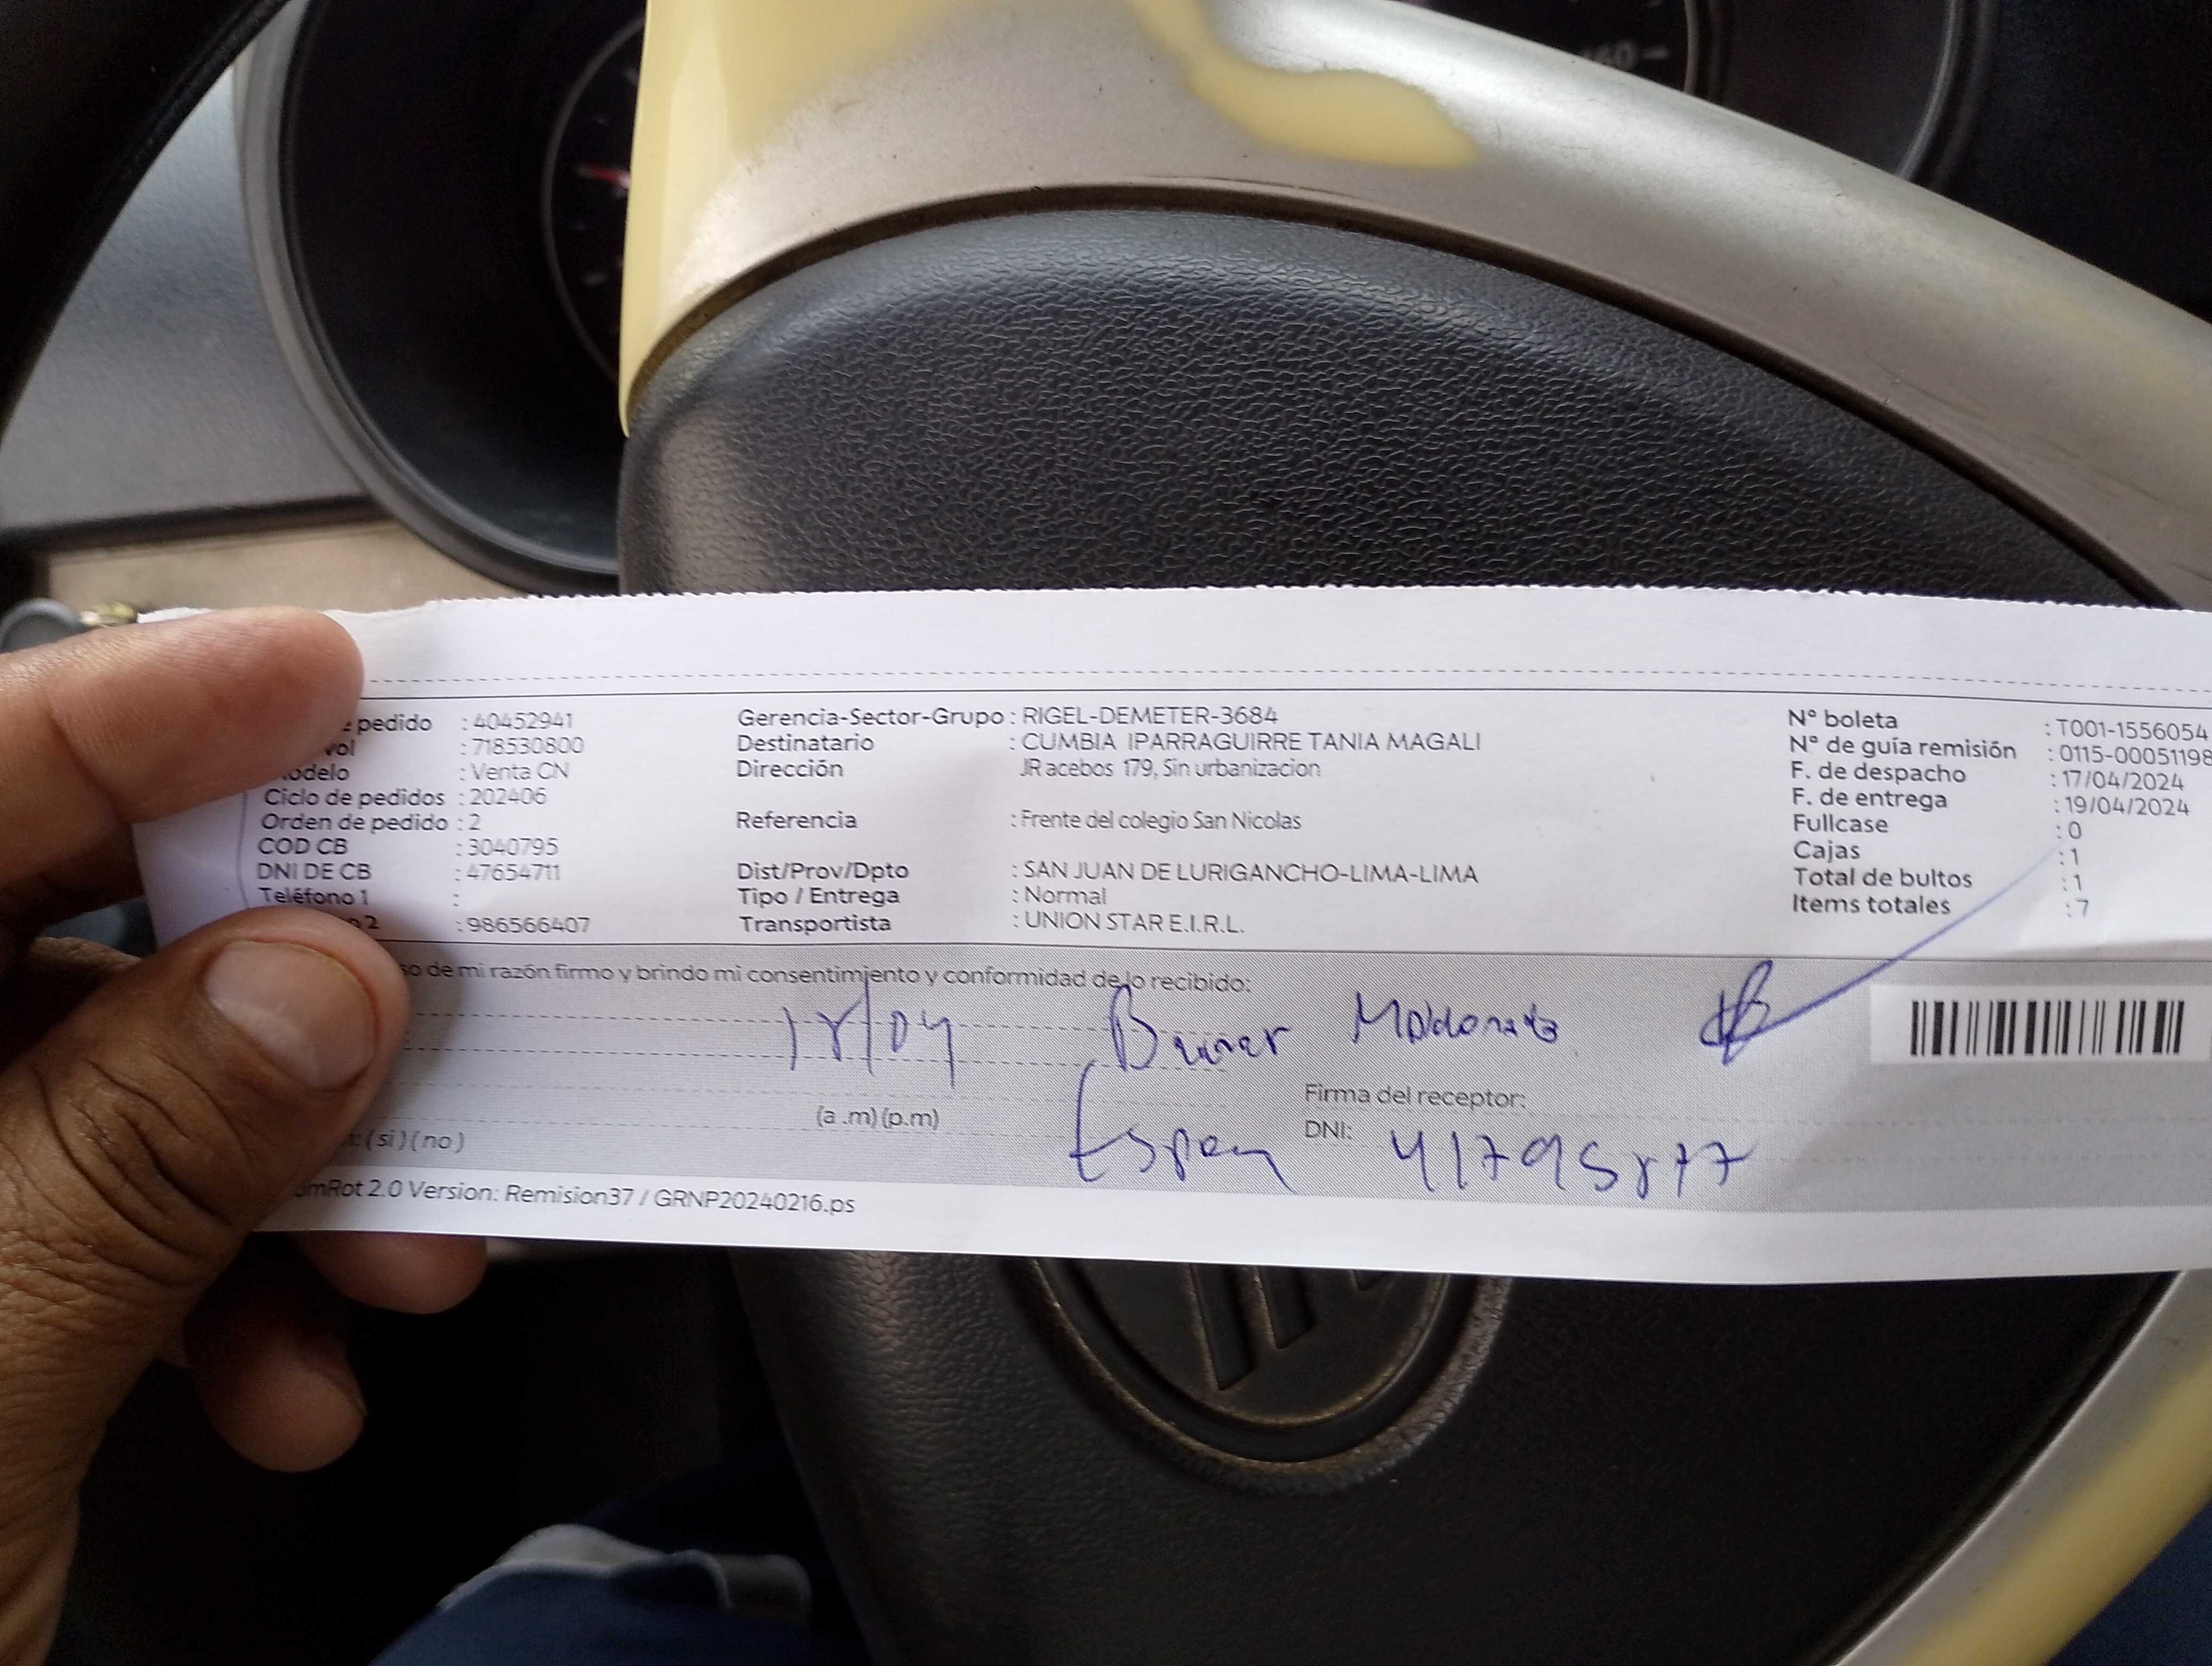 pedido : 40452941 Gerencia-Sector-Grupo : RIGEL-DEMETER-3684 N° boleta : T001-1556054
vol : 718530800 Destinatario : CUMBIA IPARRAGUIRRE TANIA MAGALI N° de guía remisión : 0115-00051198
Modelo : Venta CN Dirección JR acebos 179, Sin urbanizacion F. de despacho : 17/04/2024
Ciclo de pedidos : 202406 F. de entrega : 19/04/2024
Orden de pedido : 2 Referencia : Frente del colegio San Nicolas Fullcase : 0
COD CB : 3040795 Cajas : 1
DNI DE CB : 47654711 Dist/Prov/Dpto : SAN JUAN DE LURIGANCHO-LIMA-LIMA Total de bultos : 1
Teléfono 1 : Tipo / Entrega : Normal Items totales : 7
2 : 986566407 Transportista : UNION STAR E.I.R.L.
so de mi razón firmo y brindo mi consentimiento y conformidad de lo recibido:
18/04
Firma del receptor:
(a .m) (p.m) DNI: 41795877
(si) (no)
mRot 2.0 Version: Remision37 / GRNP20240216.ps